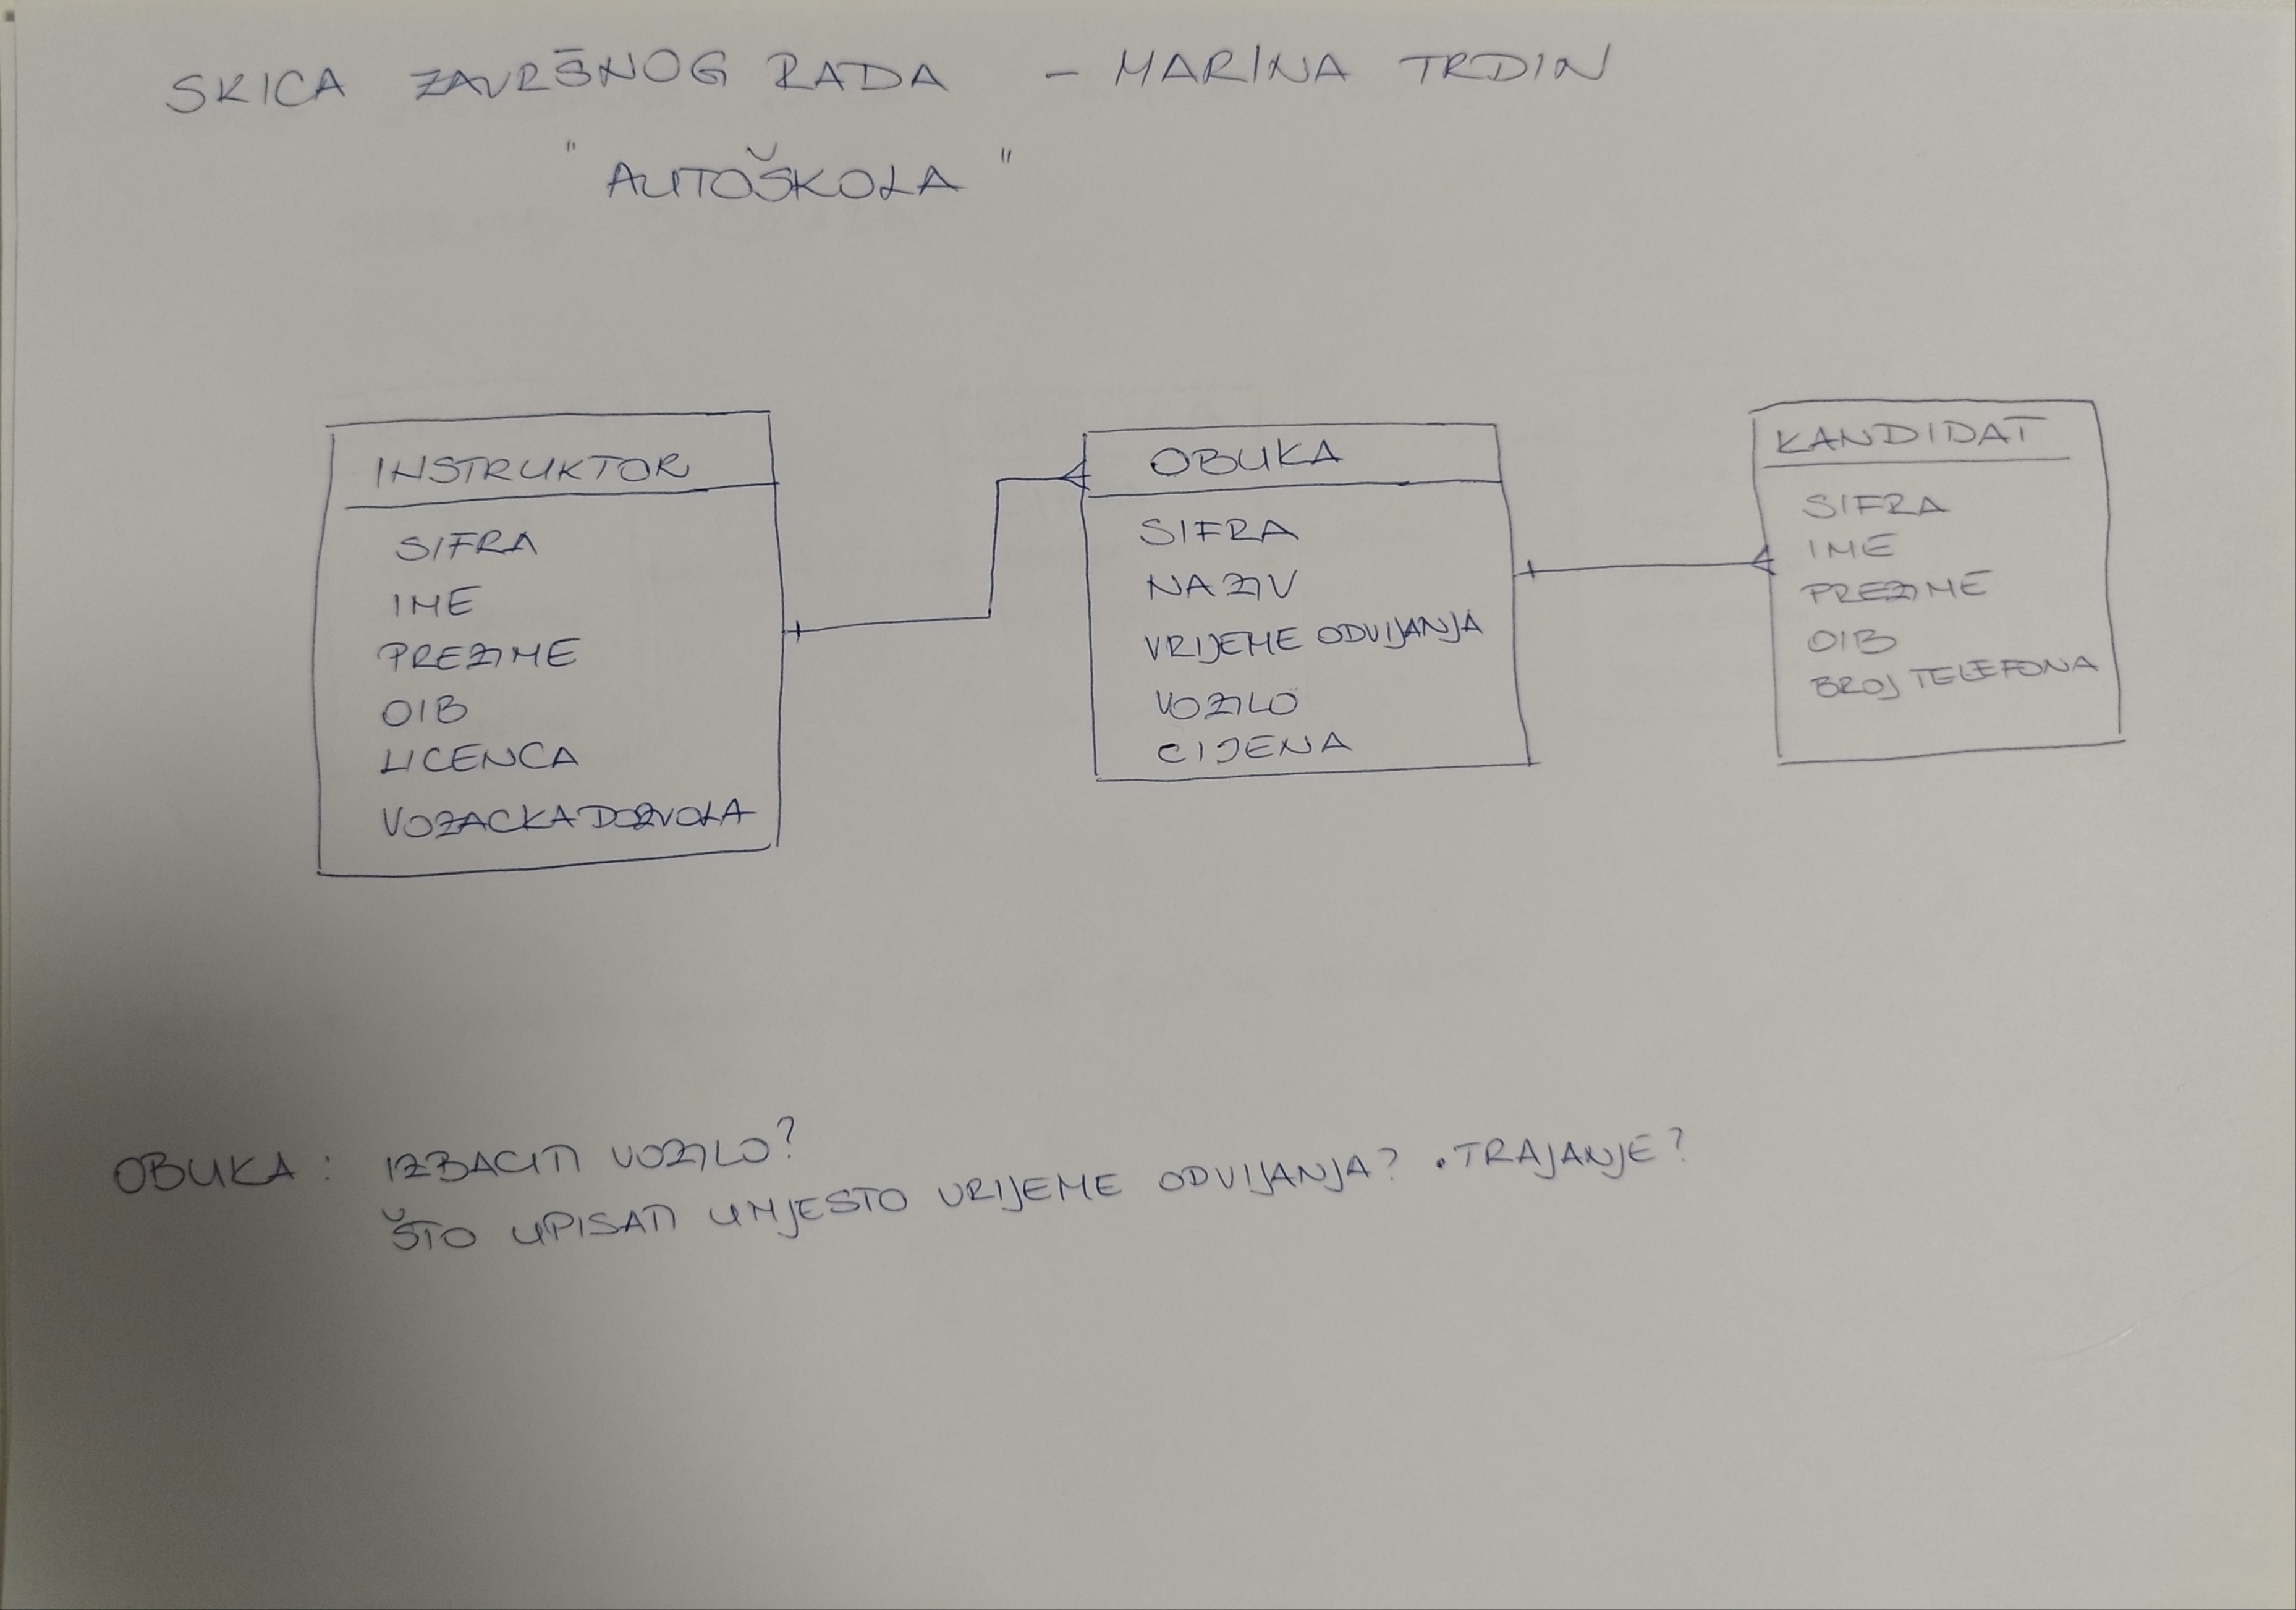 SKICA ZAVRŠNOG RADA - MARINA TRDIN
"AUTOŠKOLA"
INSTRUKTOR
SIFRA
IME
PREZIME
OIB
LICENCA
VOZACKA DOZVOLA
OBUKA
SIFRA
NAZIV
VRIJEME ODVIJANJA
VOZILO
CIJENA
KANDIDAT
SIFRA
IME
PREZIME
OIB
BROJ TELEFONA
OBUKA: IZBACITI VOZILO?
ŠTO UPISATI UMJESTO VRIJEME ODVIJANJA? • TRAJANJE?